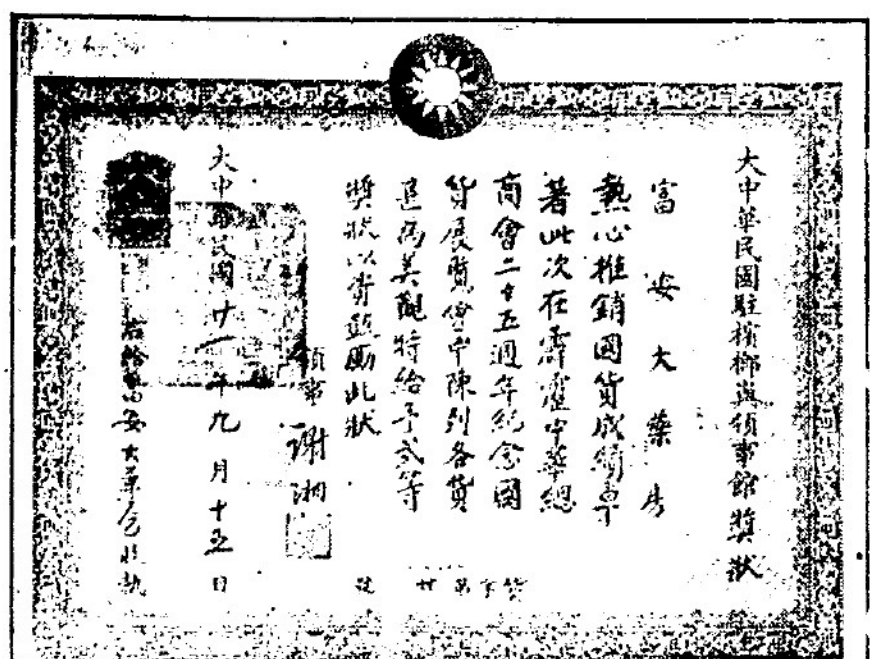 大中華民國駐檳榔嶼領事館獎狀
富安大藥房
熱心推銷國貨成績卓
著此次在霹靂中華總
商會二十五週年紀念國
貨展覽會中陳列各貨
甚為美觀特給予弍等
獎狀以資鼓勵此狀
領事 謝湘
大中華民國廿一年九月十五日
右給富安大藥房收執
貨字第廿 號